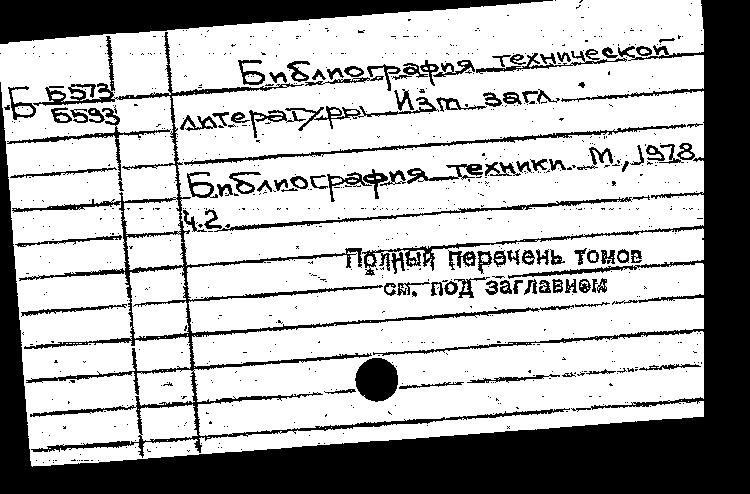 Библиография технической
Б Б573
Б593
литературы Изм. загл.
Библиография техники. М., 1978
ч.2.
Полный перечень томов
см. под заглавием